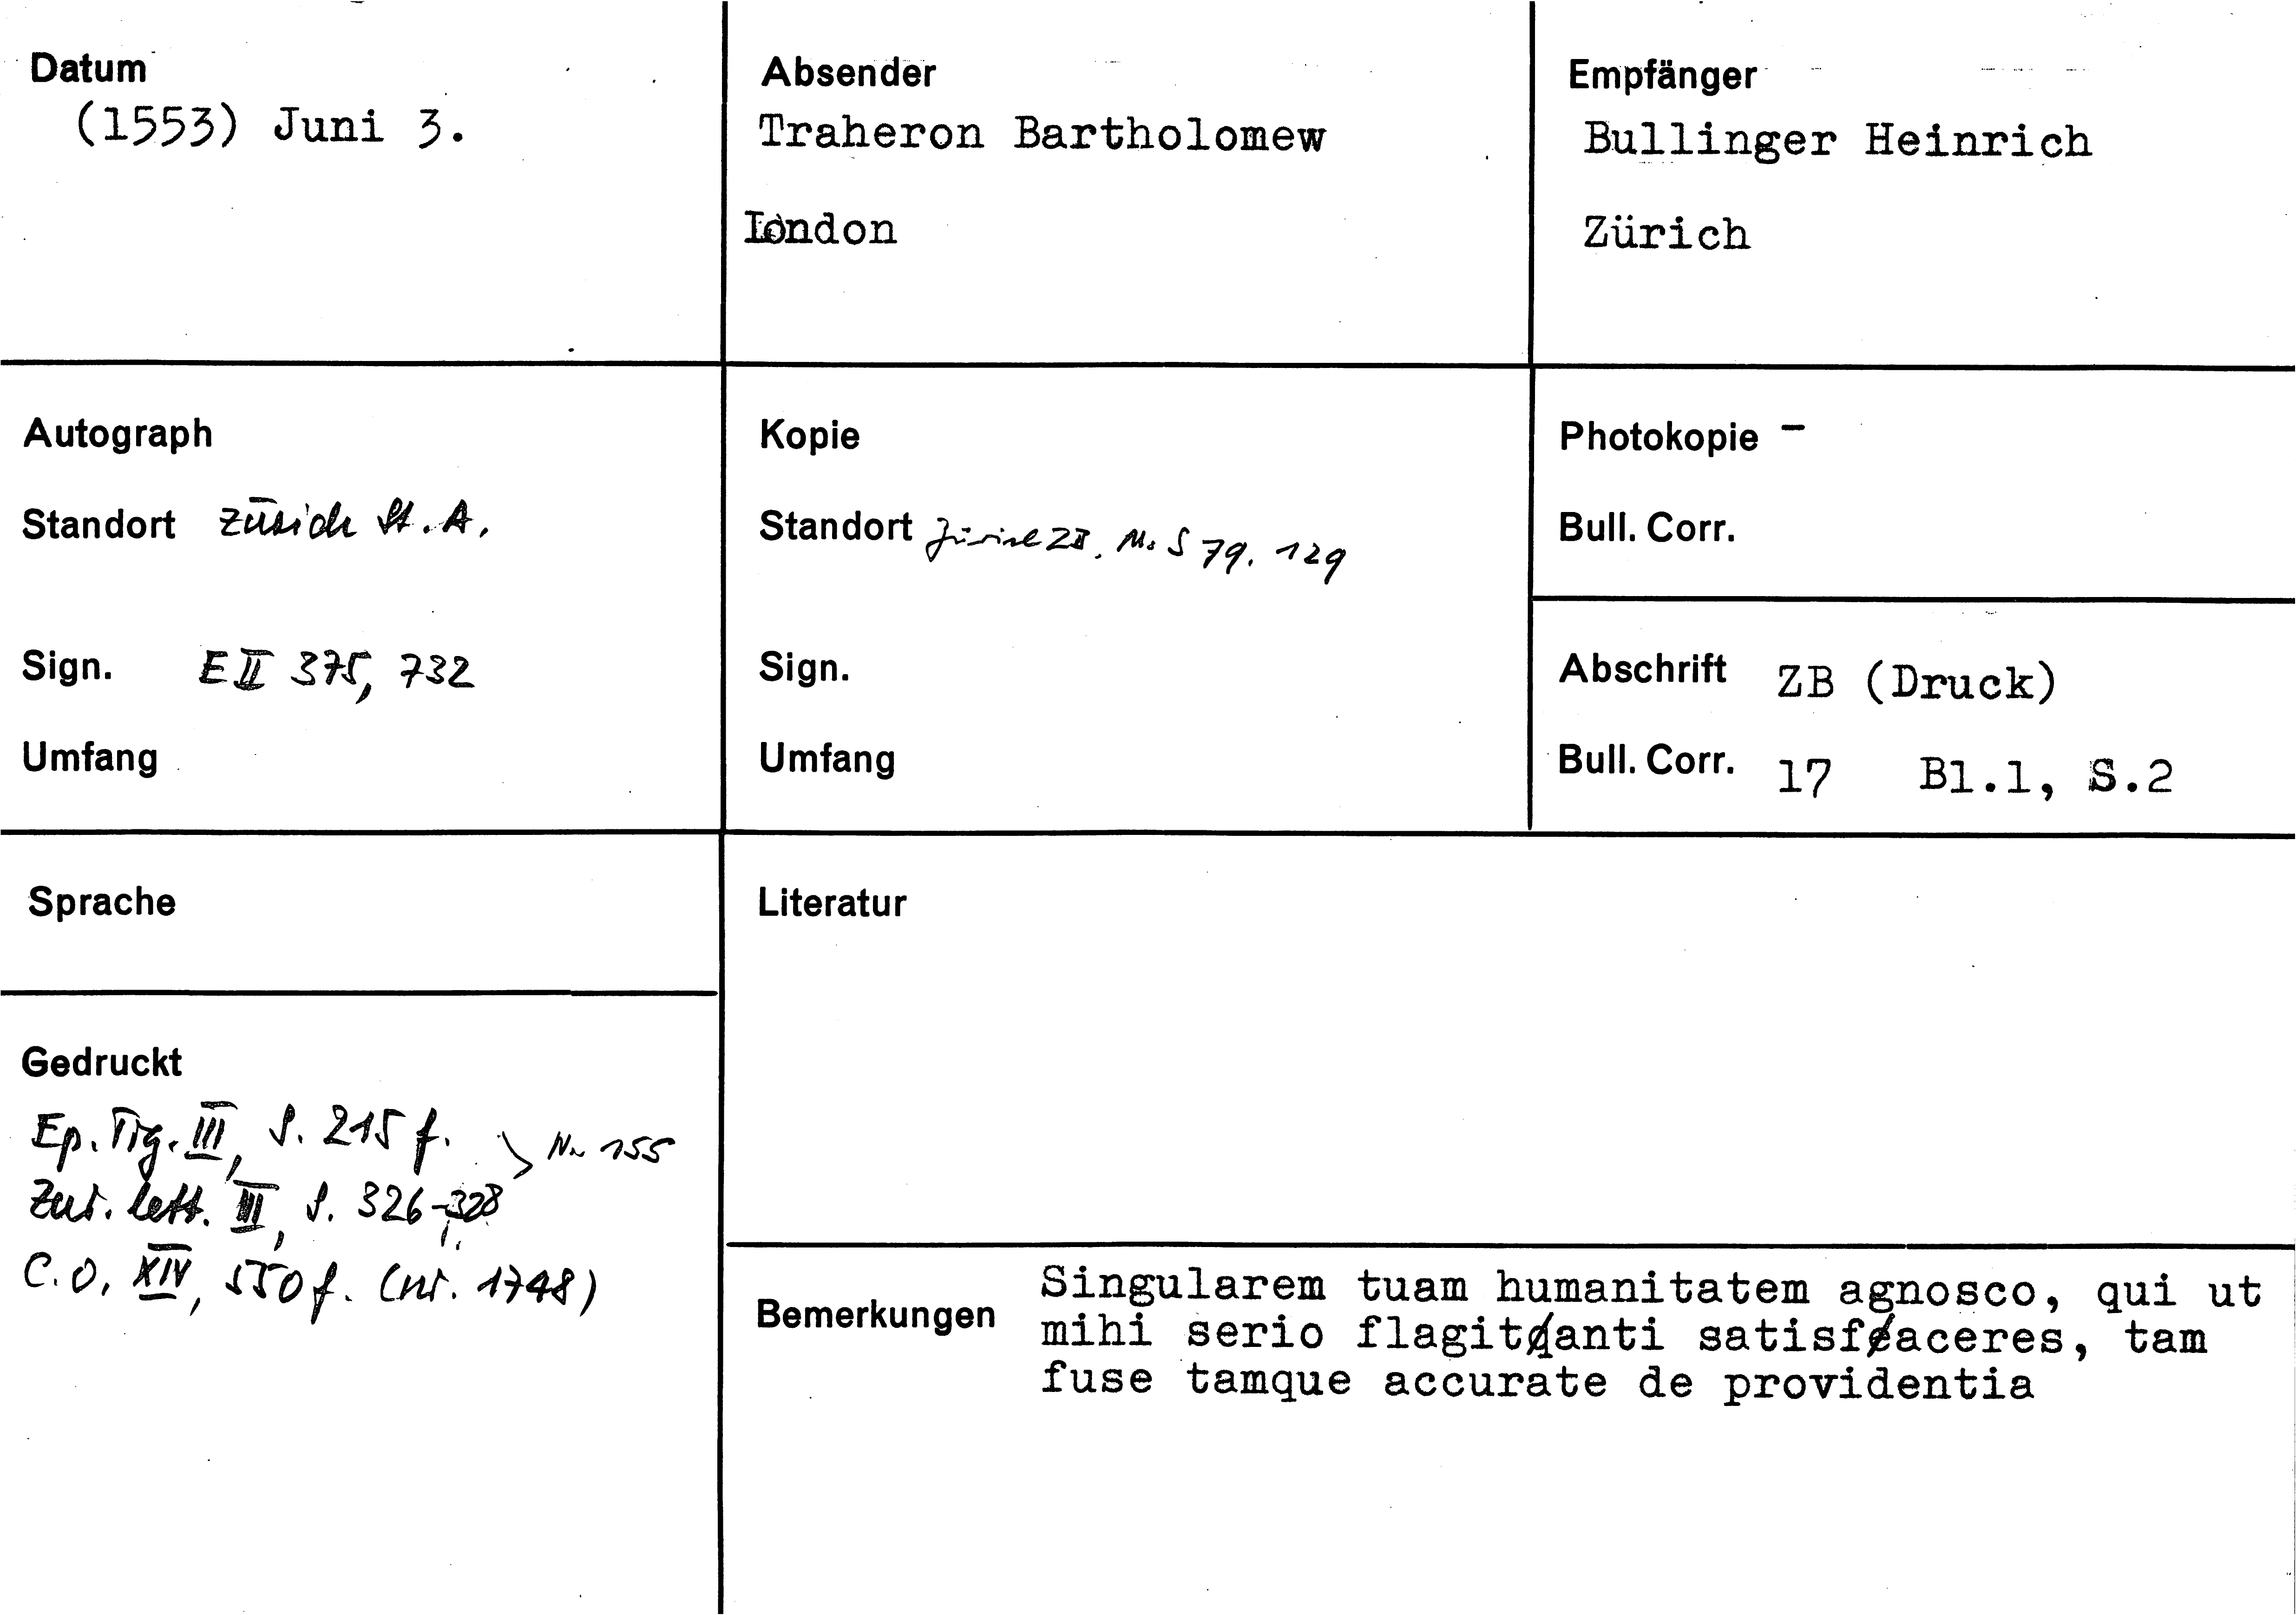 Datum
(1553) Juni 3.
Absender
Traheron Bartholomew
London
Empfänger
Bullinger Heinrich
Zürich
Autograph
Standort Zürich St. A.
Sign. E II 375, 732
Umfang
Kopie
Standort Zürich ZB. Ms S 79. 129
Sign.
Umfang
Photokopie –
Bull. Corr.
Abschrift ZB (Druck)
Bull. Corr. 17 Bl.1, S.2
Sprache
Literatur
Gedruckt
Ep. Tig. III, S. 215 f. Nr 155
Zur. lett. III, S. 326-328
C.O. XIV, 550 f. (nr. 1748)
Bemerkungen
Singularem tuam humanitatem agnosco, qui ut
mihi serio flagitanti satisfaceres, tam
fuse tamque accurate de providentia